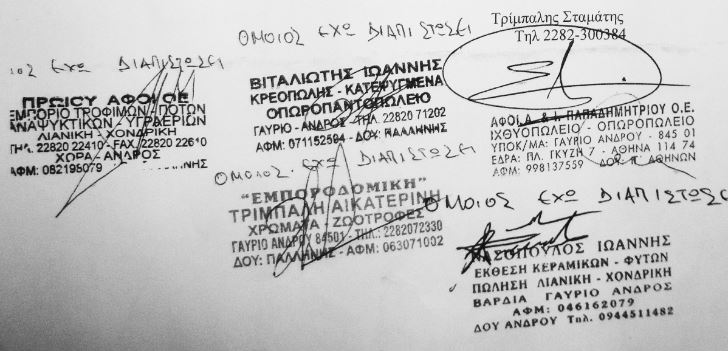 Τρίμπαλης Σταμάτης
Τηλ 2282-300384
ΟΜΟΙΟΣ ΕΧΩ ΔΙΑΠΙΣΤΩΣΕΙ
ΙΟΣ ΕΧΩ ΔΙΑΠΙΣΤΩΣΕΙ
ΠΡΩΙΟΥ ΑΦΟΙ ΟΕ
ΕΜΠΟΡΙΟ ΤΡΟΦΙΜΩΝ - ΠΟΤΩΝ
ΑΝΑΨΥΚΤΙΚΩΝ - ΥΓΡΑΕΡΙΩΝ
ΛΙΑΝΙΚΗ - ΧΟΝΔΡΙΚΗ
ΤΗΛ. 22820 22410 - FAX 22820 22610
ΧΩΡΑ - ΑΝΔΡΟΣ
ΑΦΜ: 082195079
ΒΙΤΑΛΙΩΤΗΣ ΙΩΑΝΝΗΣ
ΚΡΕΟΠΩΛΗΣ - ΚΑΤΕΨΥΓΜΕΝΑ
ΟΠΩΡΟΠΑΝΤΟΠΩΛΕΙΟ
ΓΑΥΡΙΟ - ΑΝΔΡΟΣ ΤΗΛ. 22820 71202
ΑΦΜ: 071152594 - ΔΟΥ: ΠΑΛΛΗΝΗΣ
ΑΦΟΙ Δ. & Ι. ΠΑΠΑΔΗΜΗΤΡΙΟΥ Ο.Ε.
ΙΧΘΥΟΠΩΛΕΙΟ - ΟΠΩΡΟΠΩΛΕΙΟ
ΥΠΟΚ/ΜΑ: ΓΑΥΡΙΟ ΑΝΔΡΟΥ - 845 01
ΕΔΡΑ: ΠΛ. ΓΚΥΖΗ 7 - ΑΘΗΝΑ 114 74
ΑΦΜ: 998137559 ΔΟΥ: ΑΘΗΝΩΝ
ΟΜΟΙΟΣ ΕΧΩ ΔΙΑΠΙΣΤΩΣΕΙ
"ΕΜΠΟΡΟΔΟΜΙΚΗ"
ΤΡΙΜΠΑΛΗ ΑΙΚΑΤΕΡΙΝΗ
ΧΡΩΜΑΤΑ - ΖΩΟΤΡΟΦΕΣ
ΓΑΥΡΙΟ ΑΝΔΡΟΥ 84501 - ΤΗΛ.: 2282072330
ΔΟΥ: ΠΑΛΛΗΝΗΣ - ΑΦΜ: 063071002
ΟΜΟΙΟΣ ΕΧΩ ΔΙΑΠΙΣΤΩΣΕ
ΝΑΣΟΠΟΥΛΟΣ ΙΩΑΝΝΗΣ
ΕΚΘΕΣΗ ΚΕΡΑΜΙΚΩΝ - ΦΥΤΩΝ
ΠΩΛΗΣΗ ΛΙΑΝΙΚΗ - ΧΟΝΔΡΙΚΗ
ΒΑΡΔΙΑ ΓΑΥΡΙΟ ΑΝΔΡΟΣ
ΑΦΜ: 046162079
ΔΟΥ ΑΝΔΡΟΥ Τηλ. 0944511482